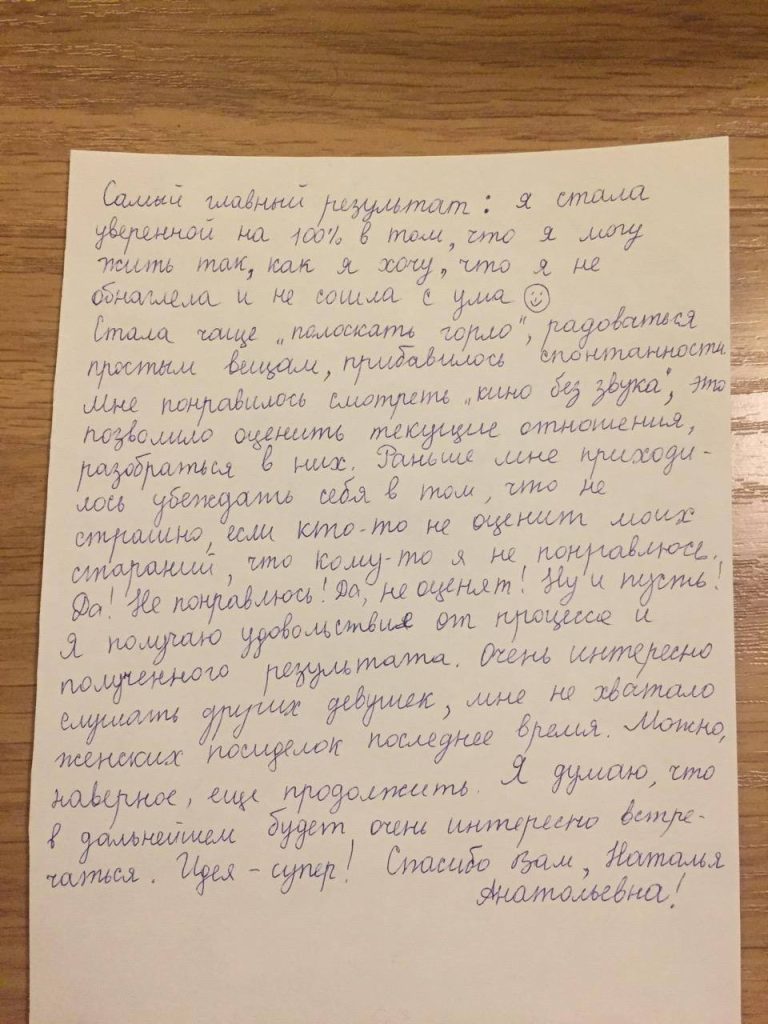 Самый главный результат: я стала
уверенной на 100% в том, что я могу
жить так, как я хочу, что я не
обнаглела и не сошла с ума ☺
Стала чаще „полоскать горло", радоваться
простым вещам, прибавилось спонтанности
Мне понравилось смотреть „кино без звука", это
позволило оценить текущие отношения,
разобраться в них. Раньше мне приходи-
лось убеждать себя в том, что не
страшно, если кто-то не оценит моих
стараний, что кому-то я не понравлюсь.
Да! Не понравлюсь! Да, не оценят! Ну и пусть!
Я получаю удовольствие от процесса и
полученного результата. Очень интересно
слушать других девушек, мне не хватало
женских посиделок последнее время. Можно,
наверное, еще продолжить. Я думаю, что
в дальнейшем будет очень интересно встре-
чаться. Идея - супер! Спасибо Вам, Наталья
Анатольевна!